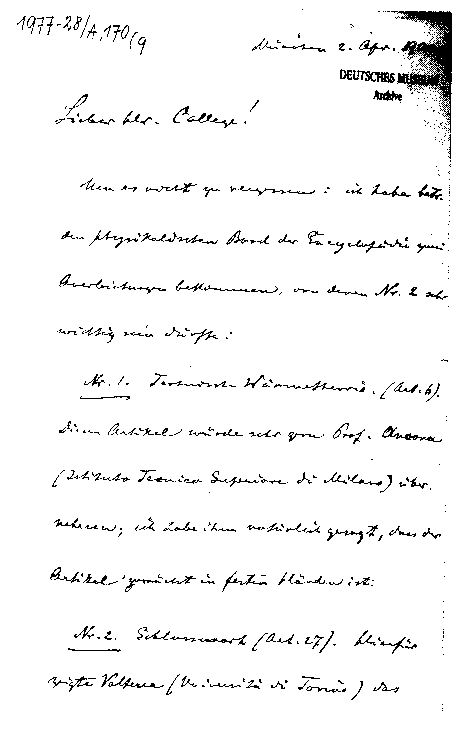 1977-28/A,170(9
München 2. Apr. 190
DEUTSCHES MUSEUM
Archive
Lieber Hr. College!
Um es nicht zu vergessen: ich habe betr.
den physikalischen Band der Encyclopädie zwei
Anerbietungen bekommen, von denen Nr. 2 sehr
wichtig sein dürfte:
Nr. 1. Technische Wärmetheorie. (Art. 6).
Diesen Artikel würde sehr gern Prof. Ancona
(Istituto Tecnico Superiore di Milano) über-
nehmen; ich habe ihm natürlich gesagt, dass der
Artikel zunächst in festen Händen ist.
Nr. 2. Schlusswort (Art. 27). Hierfür
zeigte Volterra (Università di Torino) das